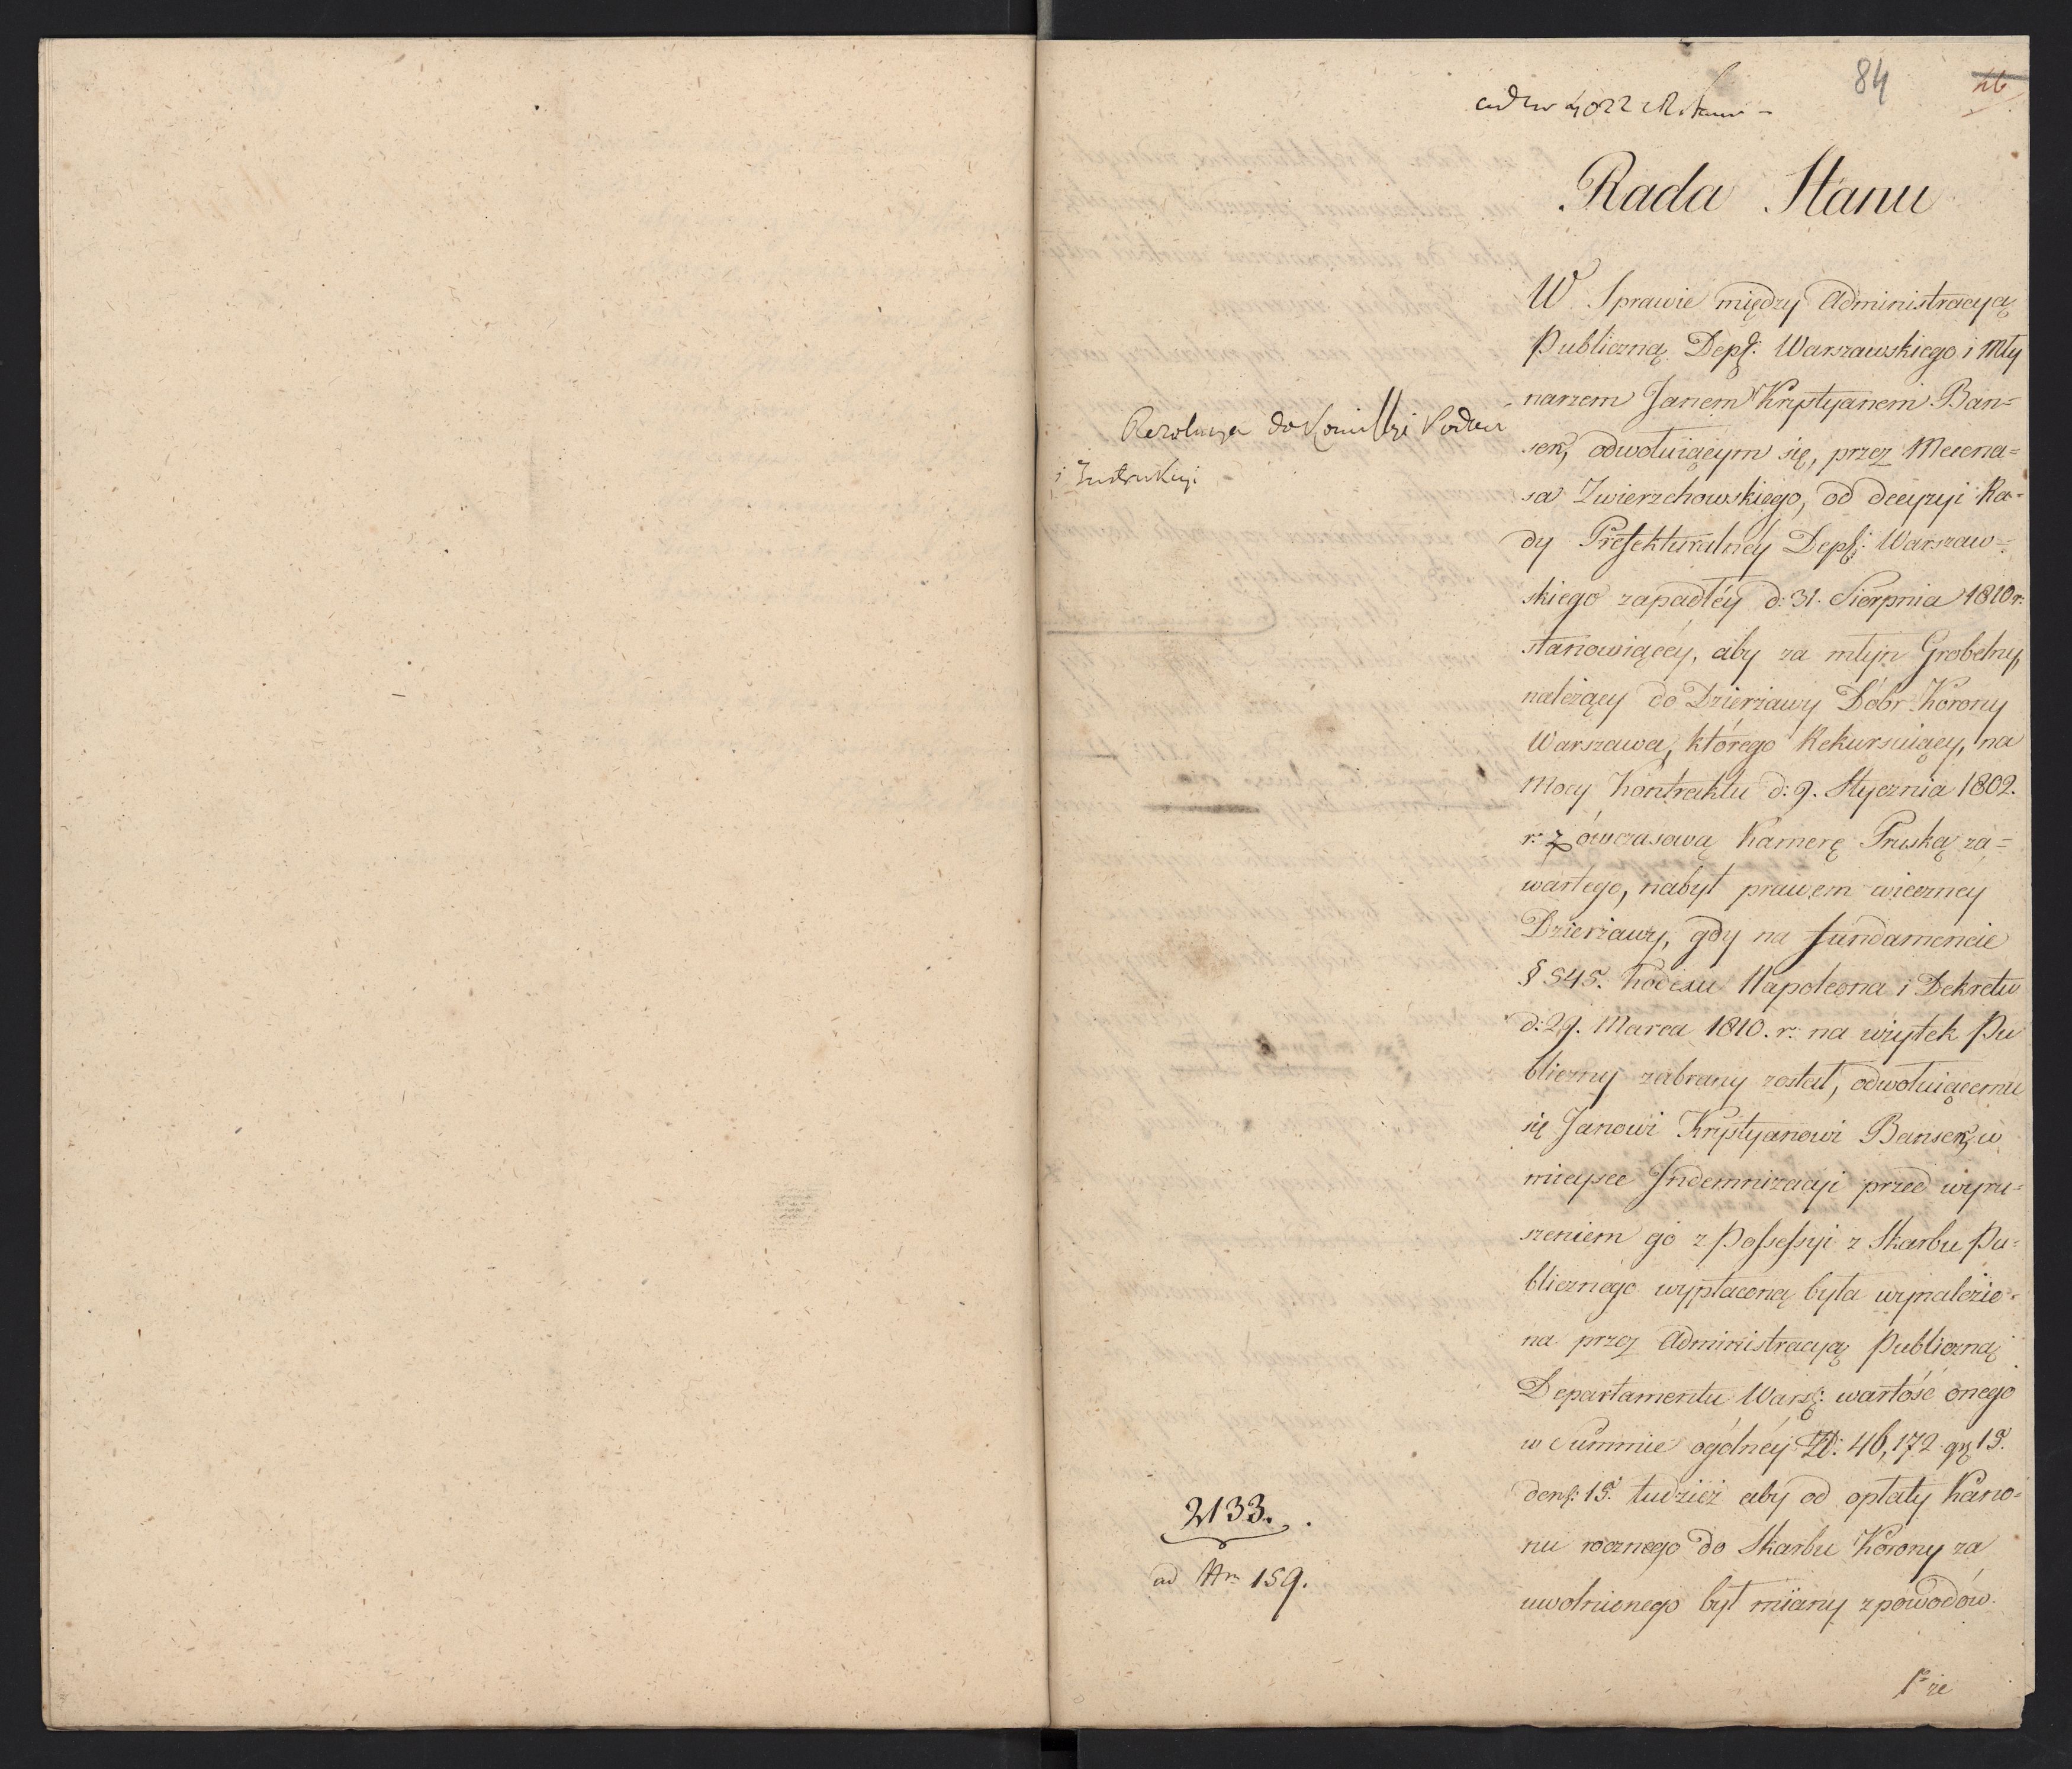 84
46
ad Nro 4022
Rada Stanu
W Sprawie między Administracyą
Publiczną Dep: Warszawskiego i Mły
narzem Janem Krystyanem Ban=
sen, odwołuiącym się, przez Mecena=
sa Zwierzchowskiego, od decyzyi Ra=
dy Prefekturalney Dep: Warszaw=
skiego zapadłéy d: 31. Sierpnia 1810 r:
stanowiącéy, aby za młyn Grobelny,
należący do Dzierżawy Dóbr Korony
Warszawa, którego Rekursuiący, na
Mocy Kontraktu d: 9. Stycznia 1802.
r: z ówczasową Kamerę Pruską za=
wartego, nabył prawem wieczney
Dzierżawy, gdy na fundamencie
§ 545. Kodexu Napoleona i Dekretu
d: 29. Marca 1810. r: na użytek Pu
bliczny zabrany został, odwołuiącemu
się Janowi Krystyanowi Bansen, w
mieysce Indemnizacyi przed wyru=
szeniem go z Possessyi z Skarbu Pu=
blicznego wypłaconą była wynalezio=
na przez Administracyą Publiczną
Departamentu Wars: wartość onego
w Summie ogólnéy Zł: 46,172 gr 15.
den: 15. tudzież aby od opłaty Kano=
nu rocznego do Skarbu Korony za
uwolnionego był miany z powodów.
1º że
Rezolucya do Kommissyi Podań
i Instrukcyi
2133.
ad Nrm 159.